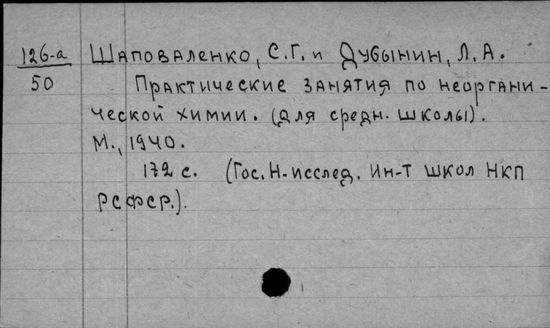 126-а Шаповаленко, С.Г. и Дубынин, Л.А.
50 Практические занятия по неоргани-
ческой химии. (для средн. школы).
М., 1940.
172 с. (Гос. Н-исслед. Ин-т школ НКП
РСФСР.).